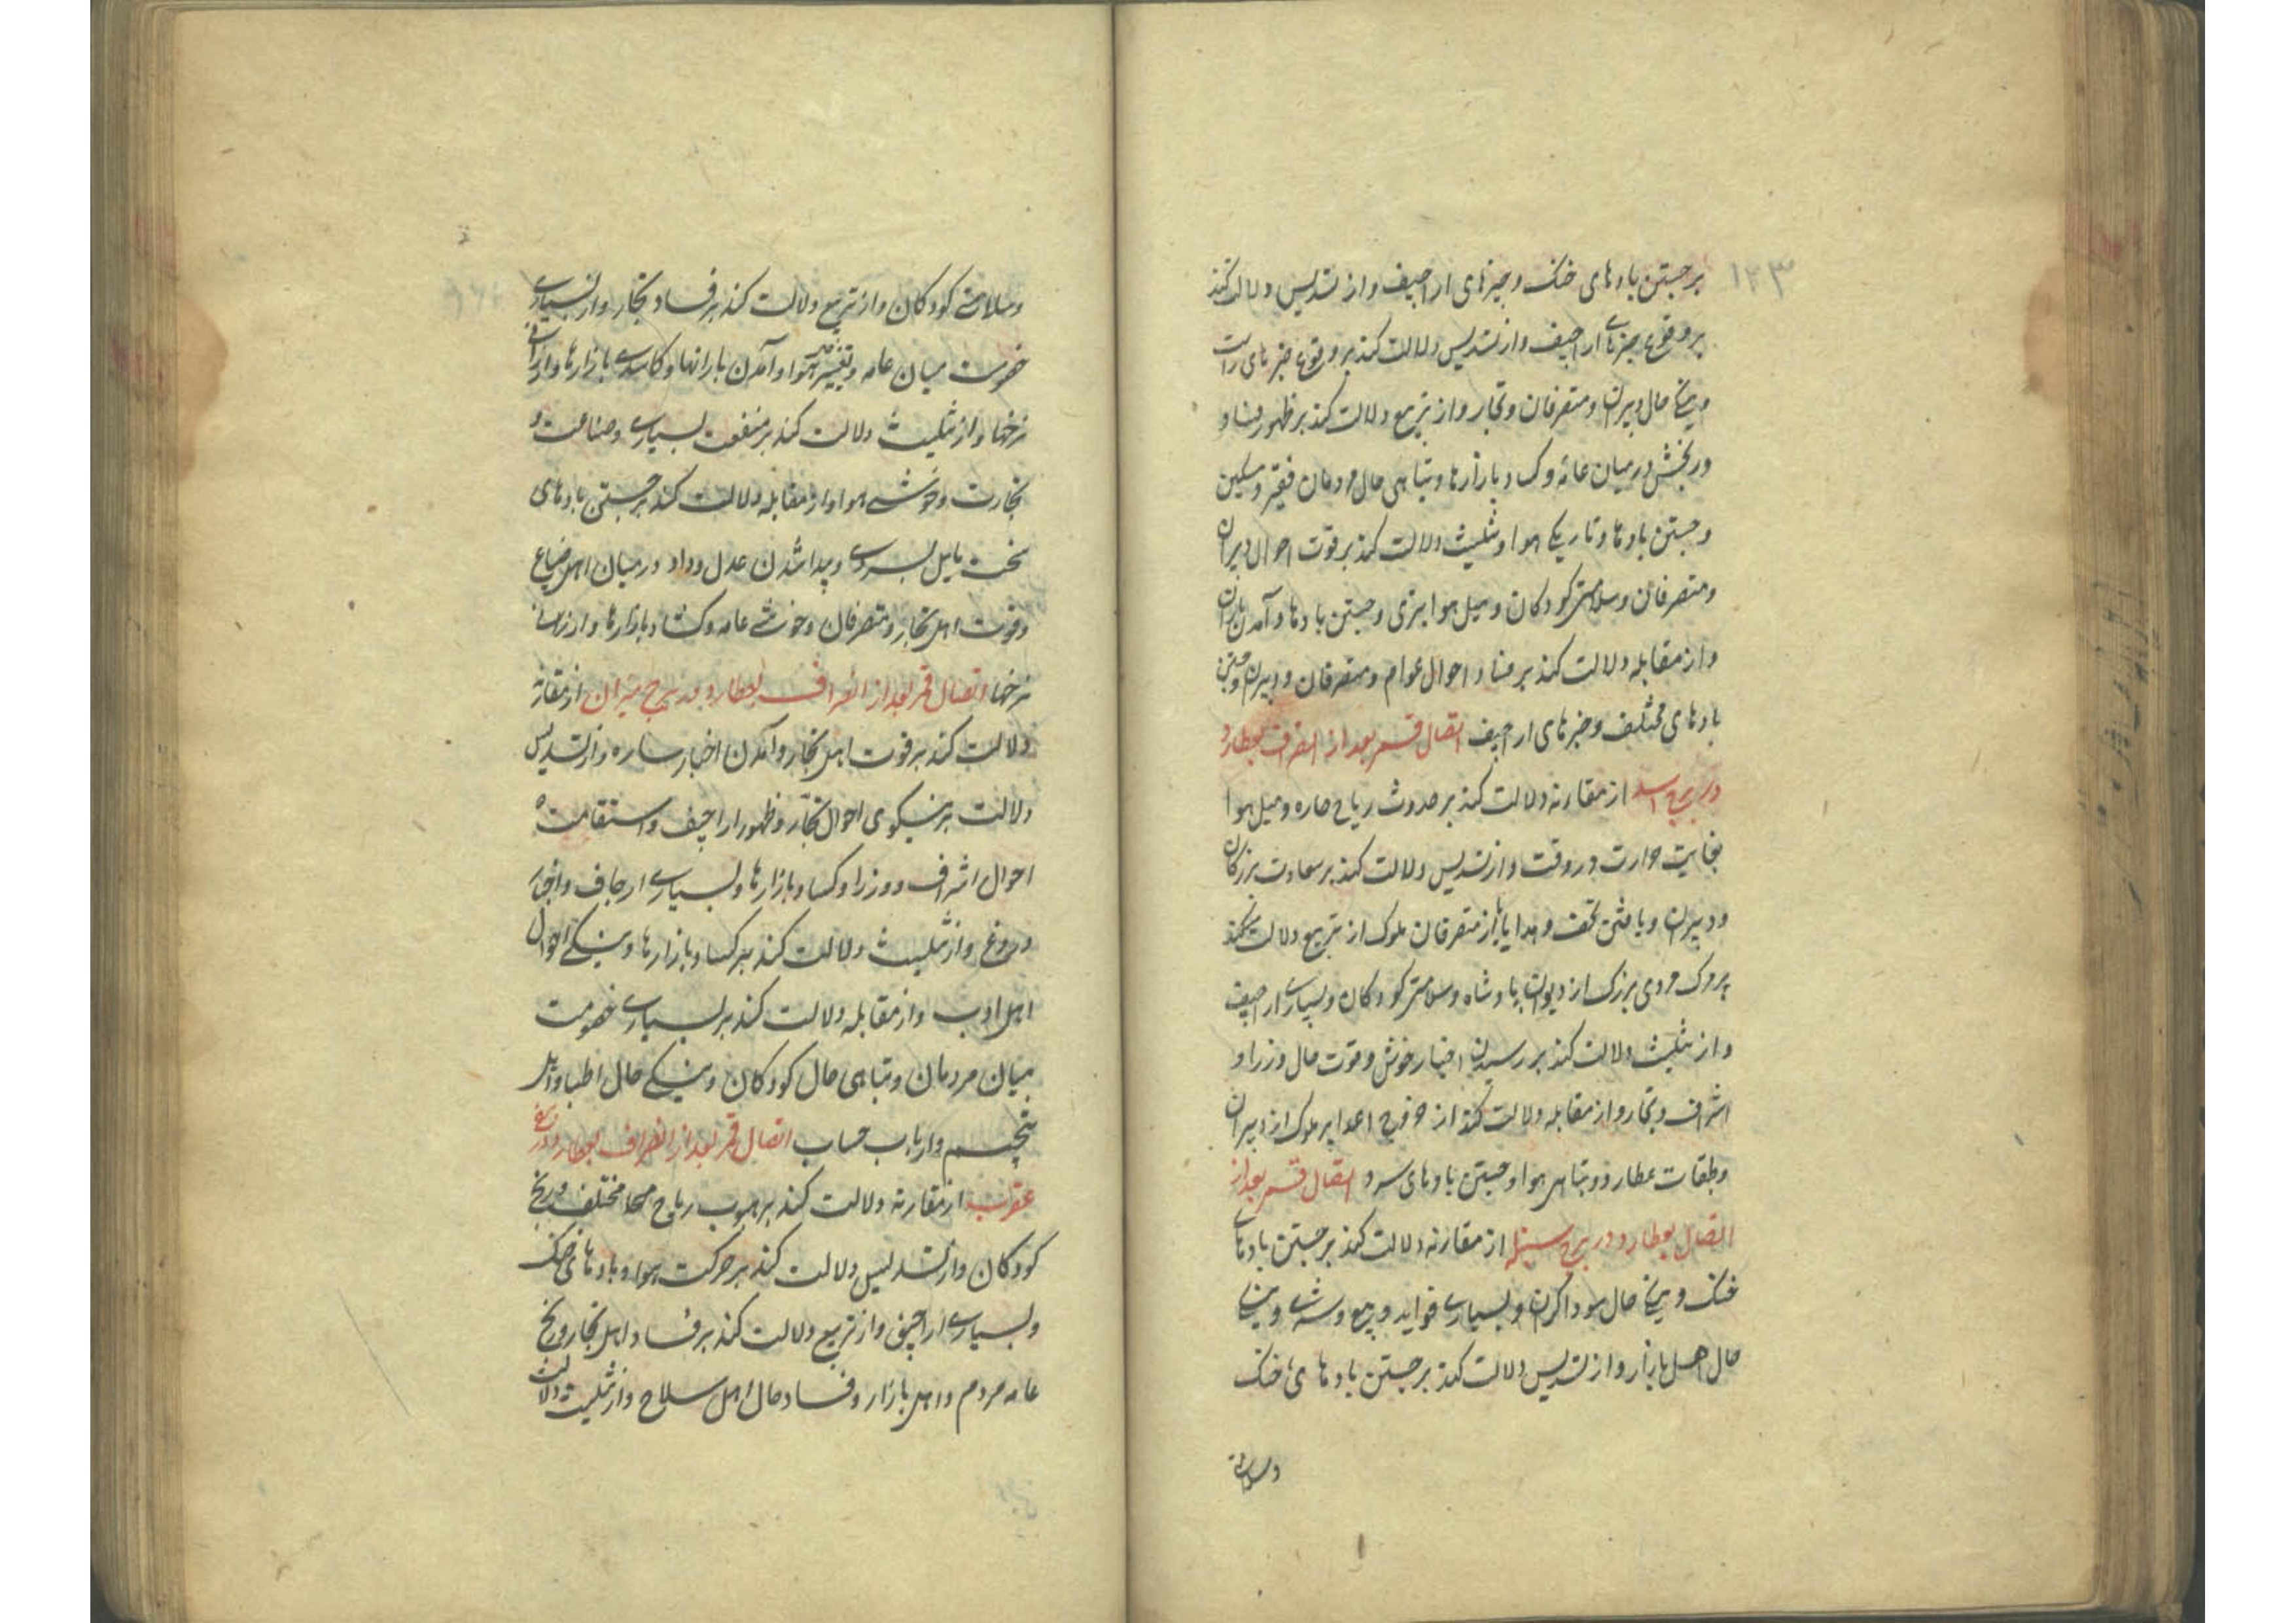 ۱۲۳
بر جستن بادهای خنک و خبرهای اراجیف و از تسدیس دلالت کند
بر وقوع خبرهای اراجیف و از تسدیس دلالت کند بر وقوع خبرهای راست
حال دبیران و متصرفان و تجار و از تربیع دلالت کند بر ظهور فساد
و رنجش در میان عامه و کساد بازارها و تباهی حال مردمان فقیر و مسکین
و جستن بادها و تاریکی هوا و تثلیث دلالت کند بر قوت احوال دبیران
و متصرفان و سلامتی کودکان و میل هوا بتری و جستن بادها و آمدن باران
و از مقابله دلالت کند بر فساد احوال عوام و متصرفان و دبیران و جستن
بادهای مختلف و خبرهای اراجیف اتصال قمر بعد از انصراف بعطارد
در برج اسد از مقارنه دلالت کند بر حدوث ریاح حاره و میل هوا
بغایت حرارت در وقت و از تسدیس دلالت کند بر سعادت بزرکان
و دبیران و یافتن تحف و هدایا از متصرفان ملوک از تربیع دلالت کند
مردی بزرک از دیوان پادشاه و سلامتی کودکان و بسیاری اراجیف
و از تثلیث دلالت کند بر رسیدن اخبار خوش و قوت حال وزرا و
اشراف و تجار و از مقابله دلالت کند از خروج اعدا بر ملوک از دبیران
و طبقات عطارد و تباهی هوا و جستن بادهای سرد اتصال قمر بعد از
اتصال بعطارد در برج سنبله از مقارنه دلالت کند بر جستن بادهای
خنک و نیکی حال سوداکران و بسیاری فواید و بیع و شری و نیکی
حال اهل بازار و از تسدیس دلالت کند بر جستن بادهای خنک
وسلامتی
وسلامتی کودکان و از تربیع دلالت کند بر فساد تجار و از بسیاری
خصومت میان عامه و تغییر هوا و آمدن بارانها و کاسدی بازارها و ارزانی
نرخها و از تثلیث دلالت کند بر منفعت بسیاری و صناعت و
تجارت و خوشی هوا و از مقابله دلالت کند بر جستن بادهای
سخت مایل بسردی و پیدا شدن عدل و داد در میان اهل ضیاع
و قوت اهل تجار و متصرفان و خوشی عامه و کشاد بازارها و ارزانی
نرخها اتصال قمر بعد از انصراف بعطارد در برج میزان از مقارنه
دلالت کند بر قوت اهل تجار و آمدن اخبار ساره و از تسدیس
دلالت بر نیکوی احوال تجار و ظهور اراجیف و استقامت
احوال اشراف و وزرا و کساد بازارها و بسیاری ارجاف و اخبار
دروغ و از تثلیث دلالت کند بر کساد بازارها و نیکی احوال
اهل ادب و از مقابله دلالت کند بر بسیاری خصومت
میان مردمان و تباهی حال کودکان و نیکی حال اطبا و اهل
تنجیم و ارباب حساب اتصال قمر بعد از انصراف بعطارد در برج
عقرب از مقارنه دلالت کند بر هبوب ریاح مختلف و رنج
کودکان و از تسدیس دلالت کند بر حرکت هوا و بادهای خنک
و بسیاری اراجیف و از تربیع دلالت کند بر فساد اهل تجار و رنج
عامه مردم و اهل بازار و فساد حال اهل سلاح و از تثلیث دلالت